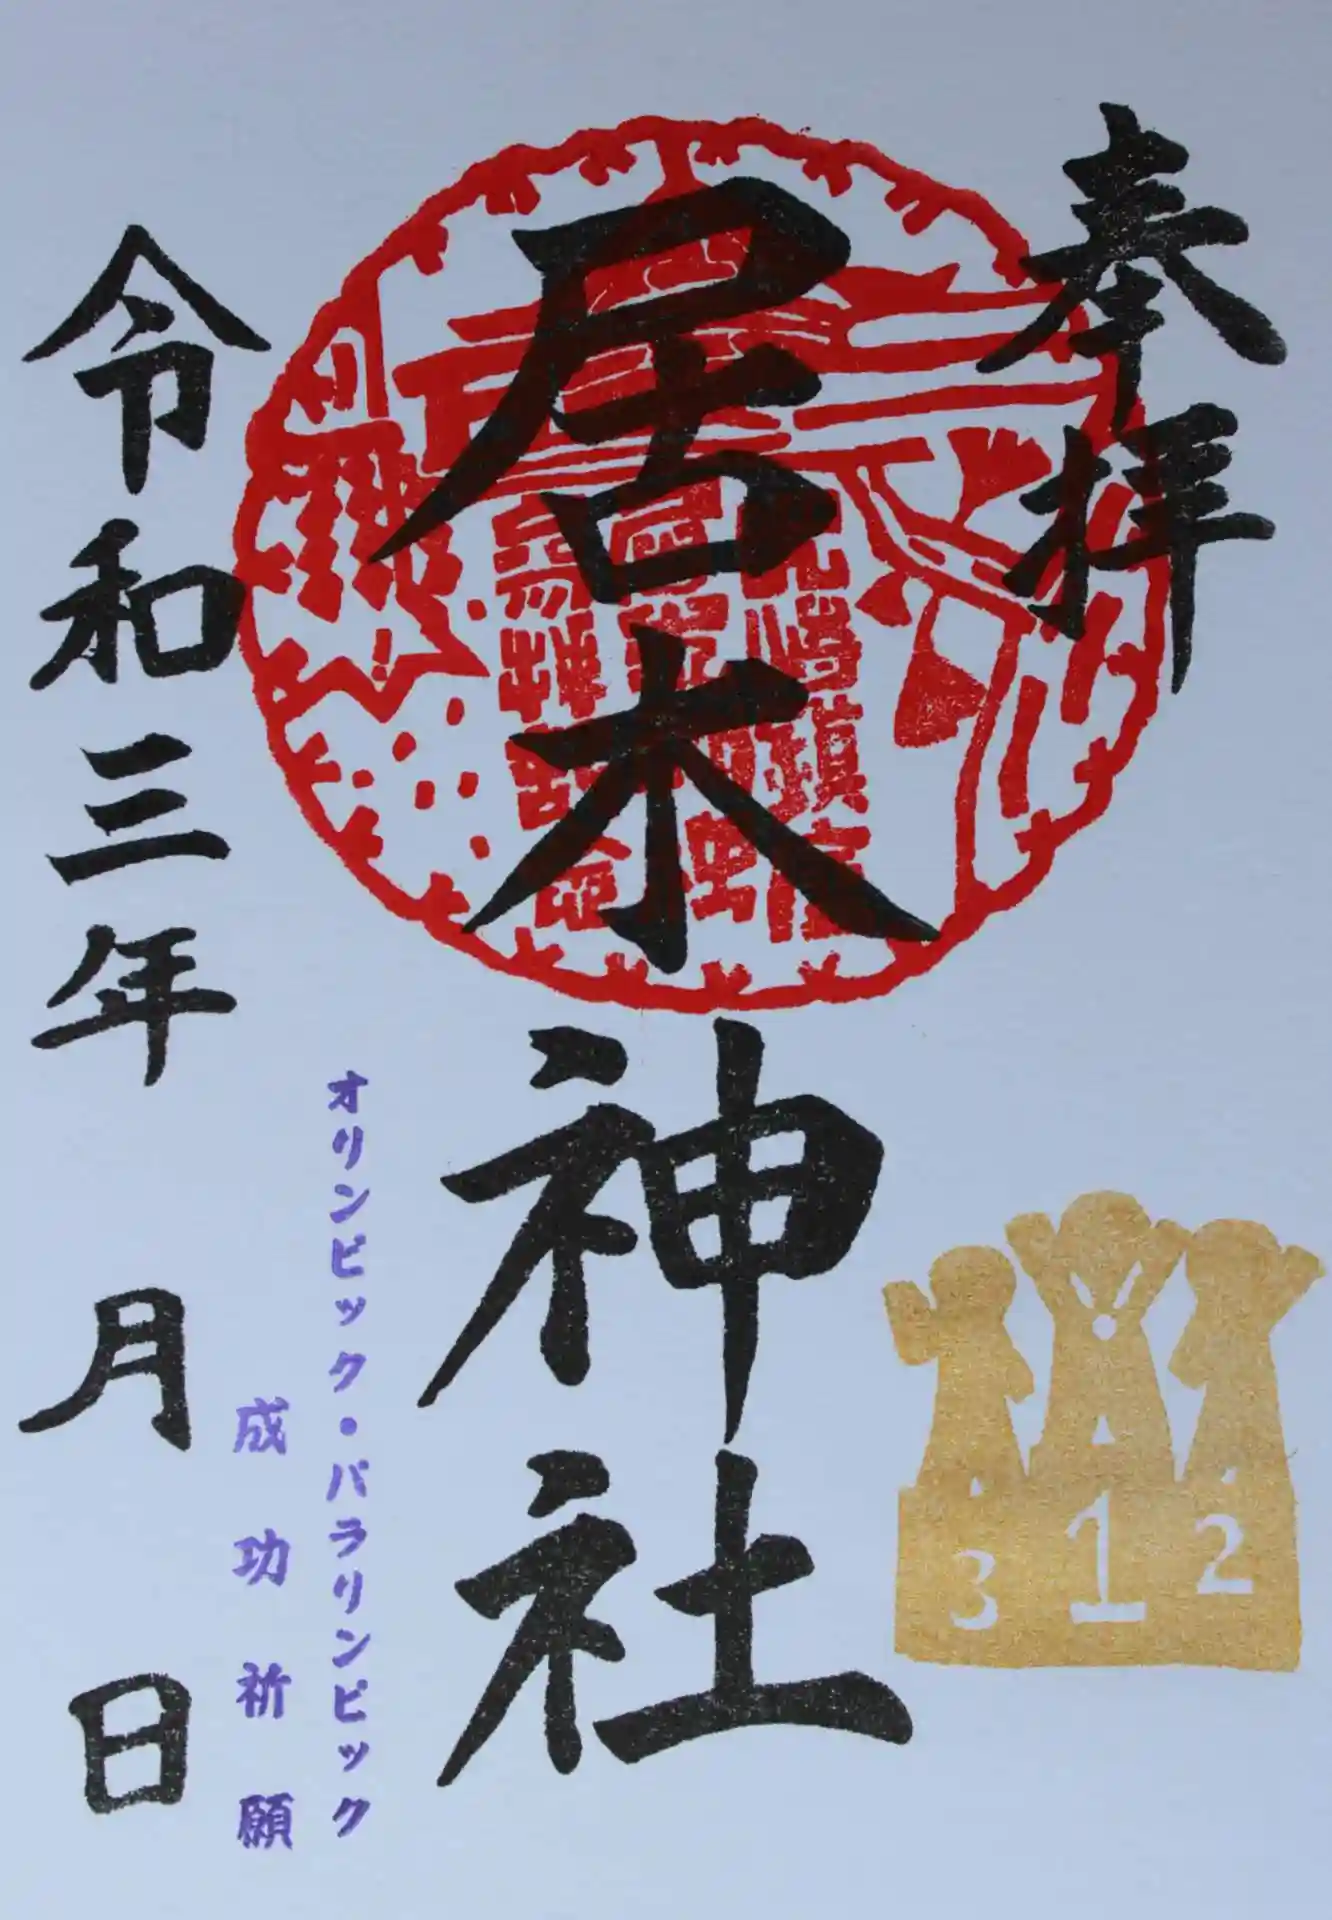 奉拝
居木神社
オリンピック・パラリンピック
成功祈願
令和三年 月 日
3 1 2